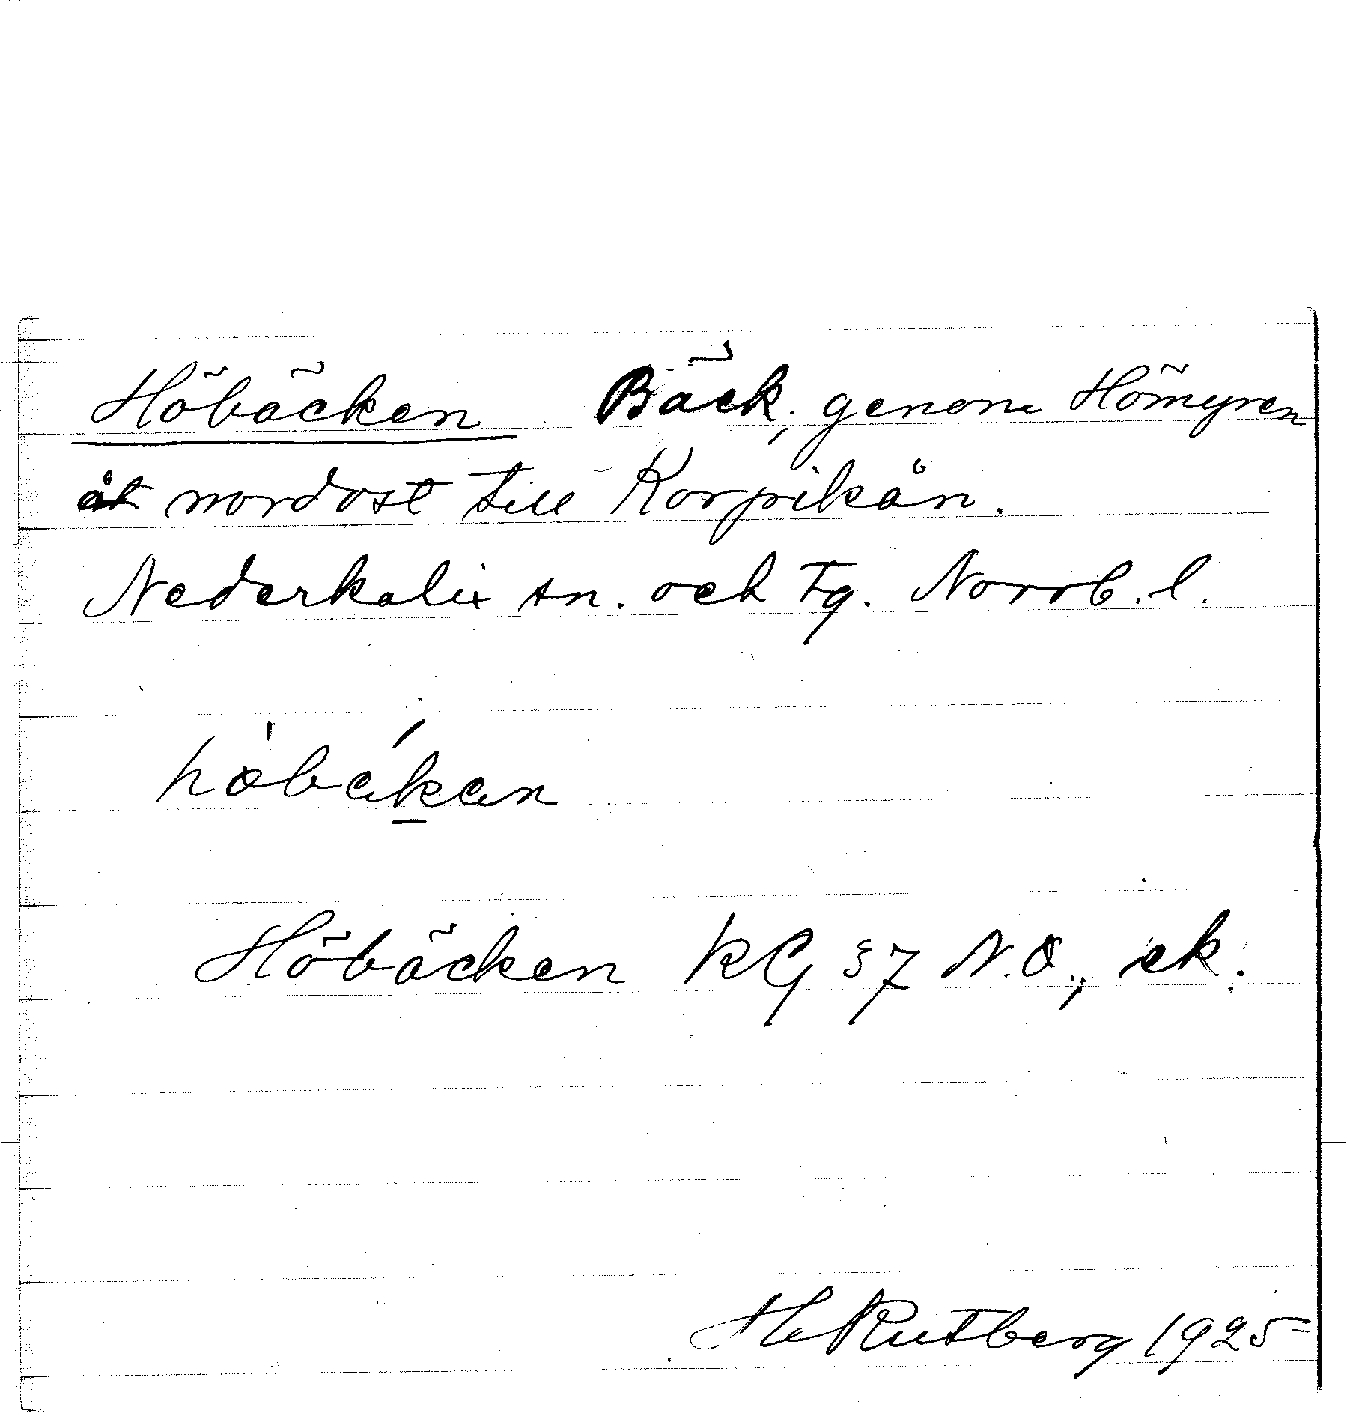 Höbäcken Bäck, genom Hömyren
åt nordost till Korpikån.
Nederkalix sn. och tg. Norrb. l.
Höbäcken KG 37 N.O., ek.
H Rutberg 1925